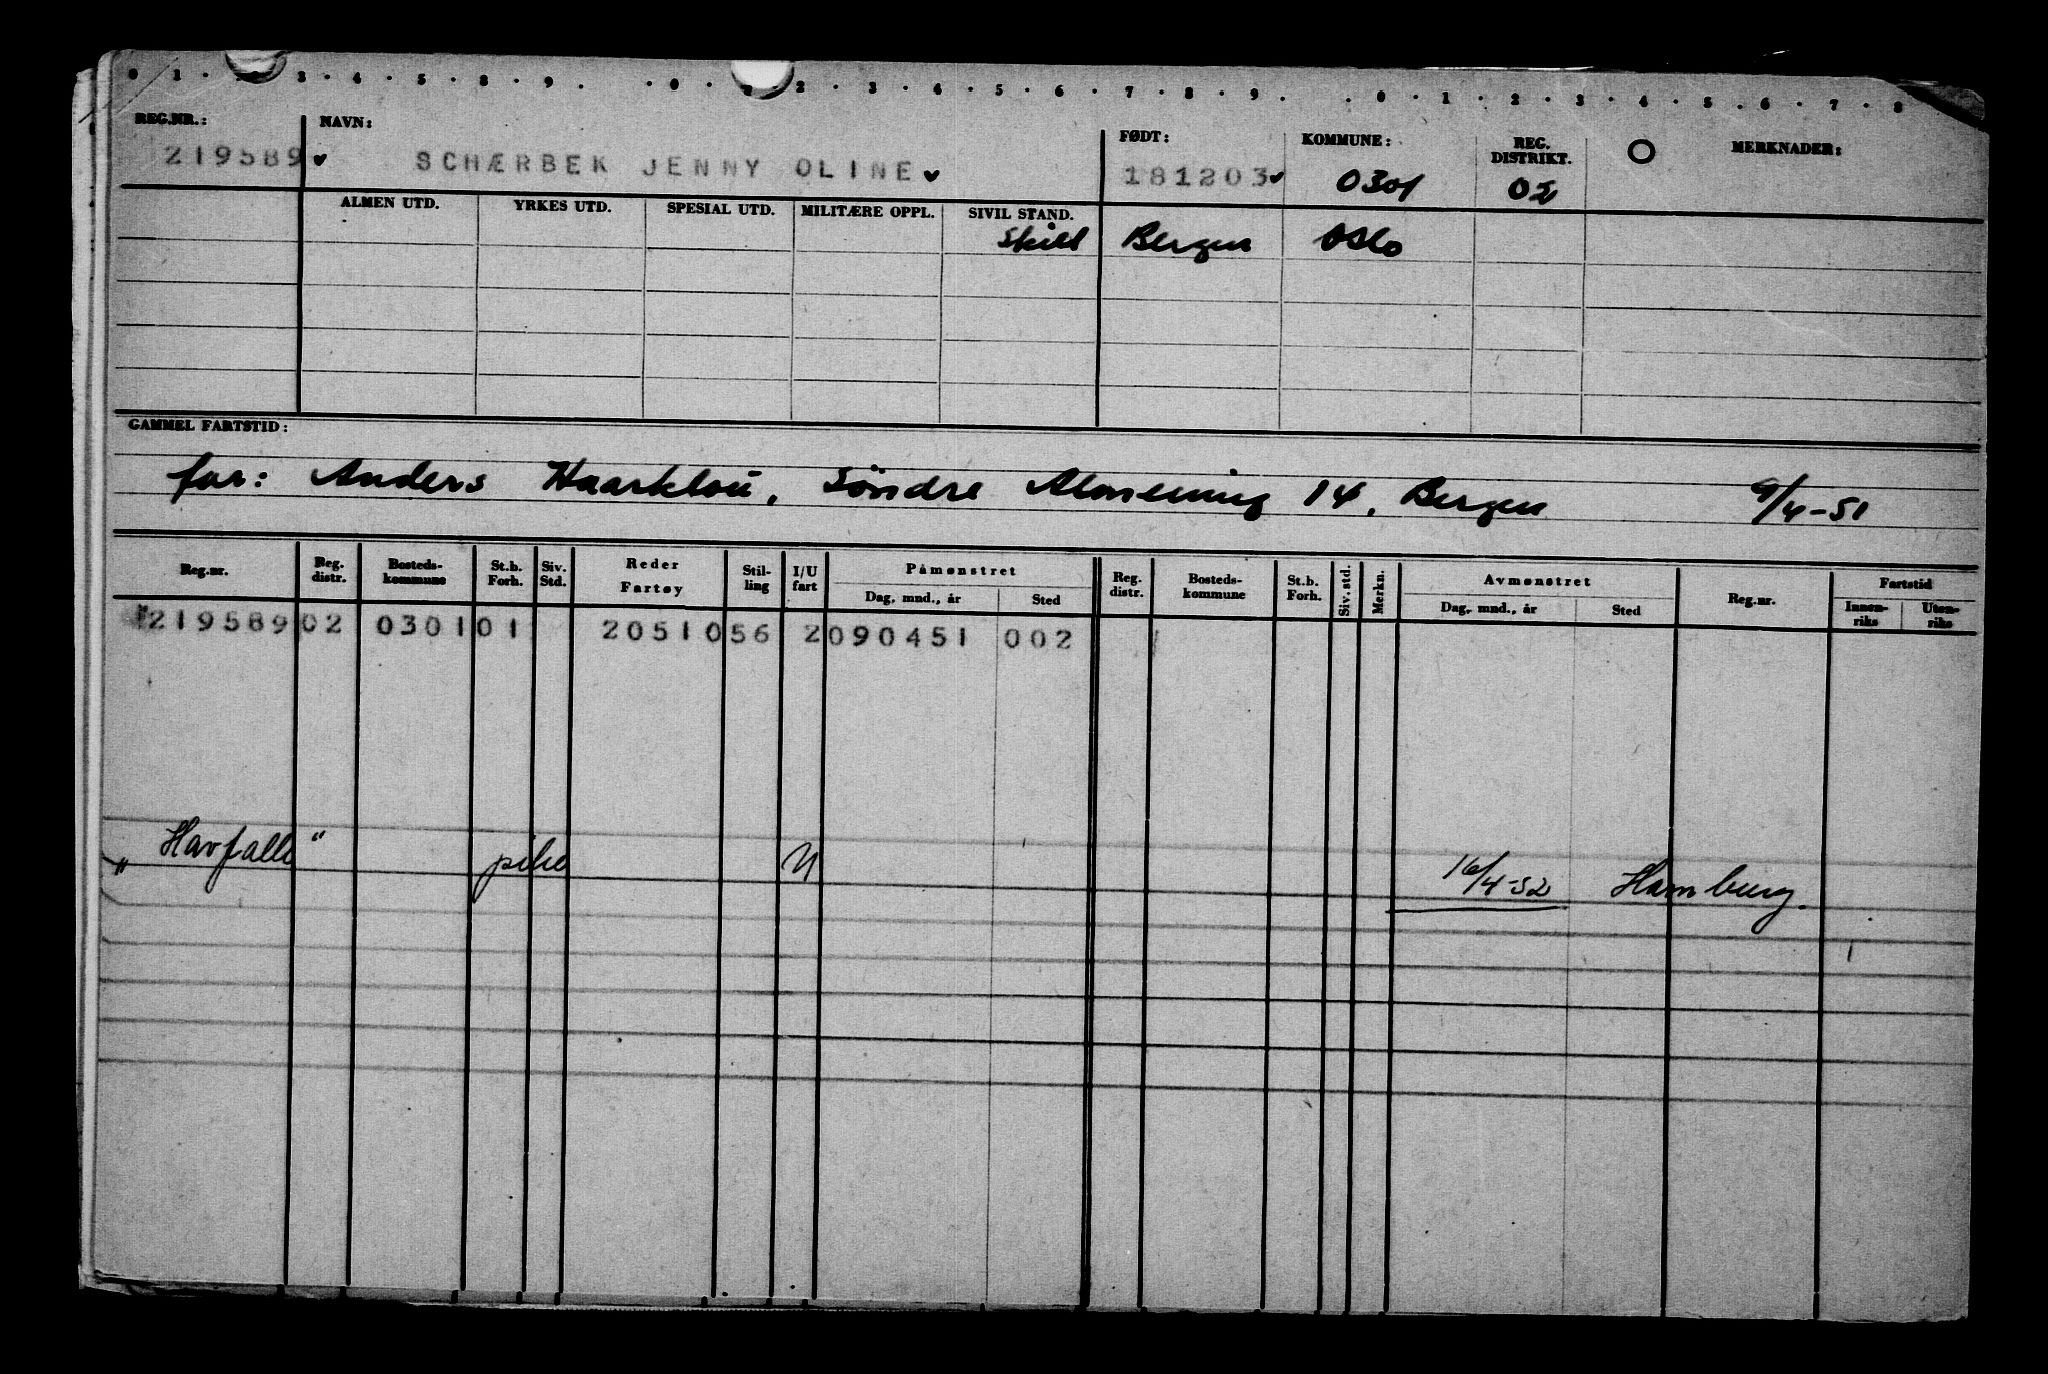 0 1 . 3 . 4 . 5 . 8 . 9 . . 0 . 2 . 3 . 4 . 5 . 6 . 7 . 8 . 9 . . 0 . 1 . 2 . 3 . 4 . 5 . 6 . 7 . 8
REG.NR.: NAVN: FØDT: KOMMUNE: REG. DISTRIKT. O MERKNADER:
219589 SCHÆRBEK JENNY OLINE 181203 0301 02
ALMEN UTD. YRKES UTD. SPESIAL UTD. MILITÆRE OPPL. SIVIL STAND.
Skilt Bergen Oslo
GAMMEL FARTSTID:
far: Anders Haarklou, Søndre 14, Bergen 9/4-51
Reg.nr. Reg. distr. Bosteds-kommune St.b. Forh. Siv. Std. Reder Fartøy Stil-ling I/U fart Påmønstret Dag, mnd., år Sted Reg. distr. Bosteds-kommune St.b. Forh. Siv. std. Merkn. Avmønstret Dag, mnd., år Sted Reg.nr. Fartstid Innen-riks Uten-riks
219589 02 0301 01 20510 56 2 090451 002
„Havfalk“ pike U 16/4-52 Hamburg.